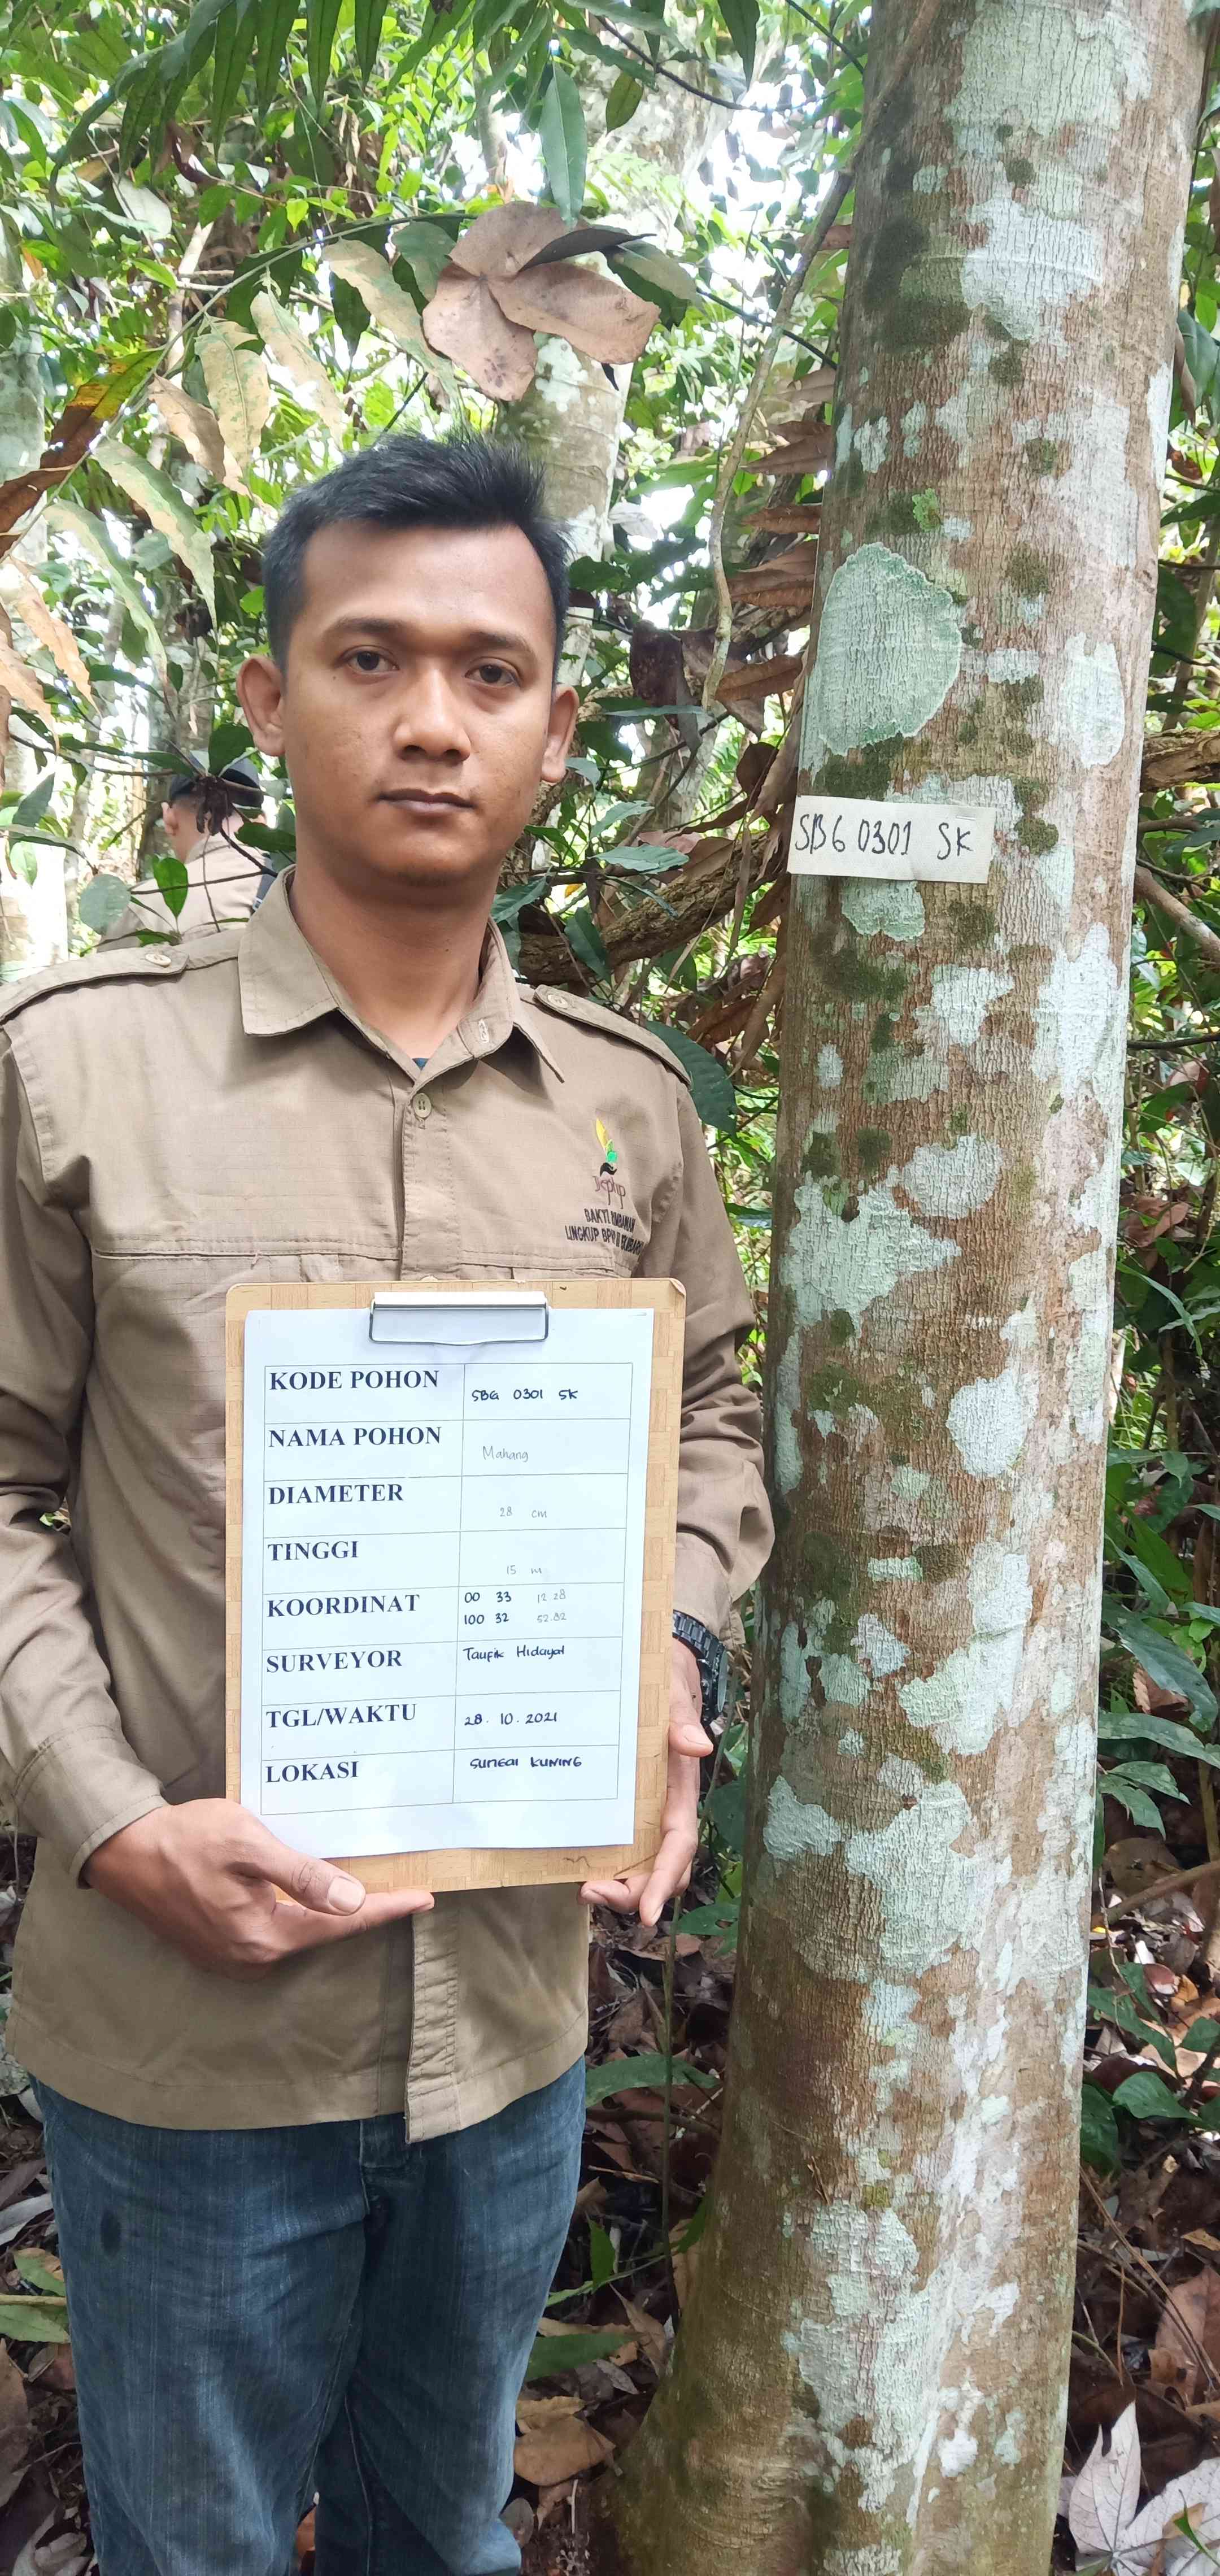 SBG 0301 SK
BAKTI RIMBAWAN
LINGKUP
KODE POHON SBG 0301 SK
NAMA POHON Mahang
DIAMETER 28 cm
TINGGI 15 m
KOORDINAT 00 33 12.28
100 32 52.82
SURVEYOR Taufik Hidayat
TGL/WAKTU 28. 10. 2021
LOKASI SUNGAI KUNING